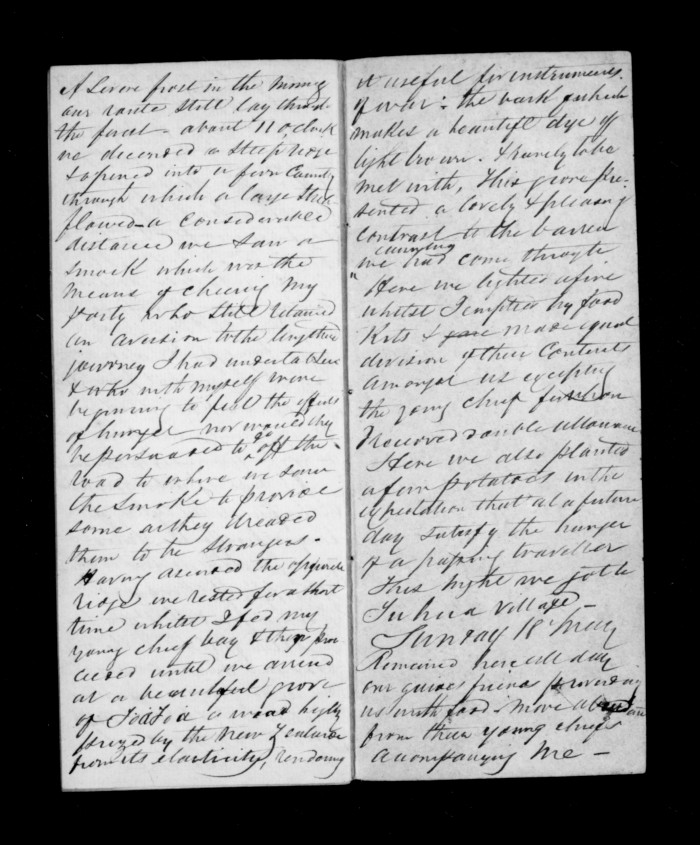 A Severe frost in the morng
our route still lay through
the forest - about 11 o,clock
we decended a steep ridge
& opened into a fern Country
through which a large
flowed - a considerable
distance we saw a
smoek which was the
means of cheering my
party who still retained
an aversion to the lengthened
journey I had undertaken
& who with myself were
beginning to feel the effects
of hunger nor would they
be persuaded to go off the
road to where we saw
the smoke to provide
some as they dreaded
them to be strangers.
Having ascended the opposite
ridge we rested for a short
time whilst I fed my
young chief boy & then pro
ceeded until we arrived
at a beautiful grove
of Toa Toa a wood highly
prized by the New Zealander
from its elasticity, rendering
it useful for instruments
of war: the bark of which
makes a beautifl dye of
light brown. & rarely to be
met with, This grove pre-
sented a lovely & pleasing
contrast to the barren
country
we had come through
Here we lighted a fire
whilst I emptied my food
Kits & made equal
division of their Contents
amongst us excepting
the young chief for whom
received double allowance
Here we also planted
a few potatoes in the
expectation that at a future
day satisfy the hunger
of a passing traveller
This night we got to
Tuhua village -
Sunday 18th May
Remained here all day
our guides friend providing
us with food - more
from their young chiefs
accompanying me -